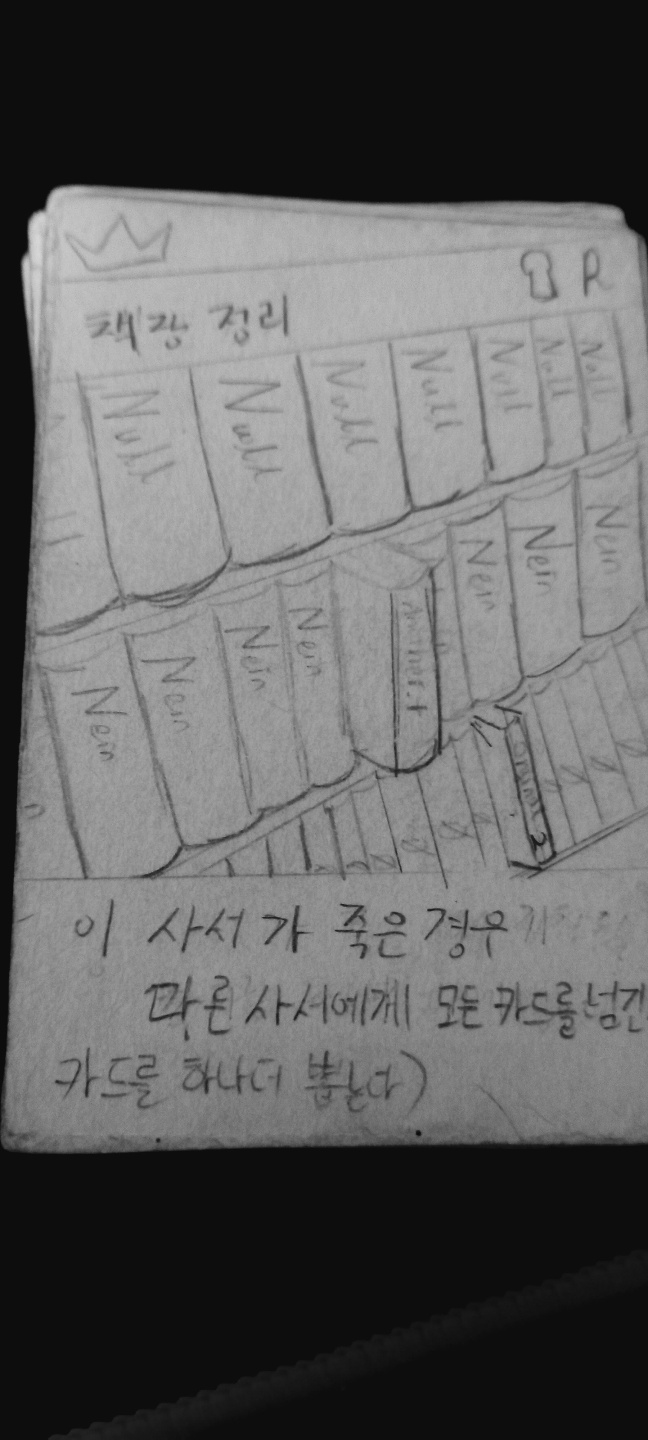 R
책장 정리
Null Null Null Null Null Null Null
Nein Nein Nein Nein Nein Nein Nein
이 사서가 죽은 경우
다른 사서에게 모든 카드를 넘긴
카드를 하나더 뽑는다)